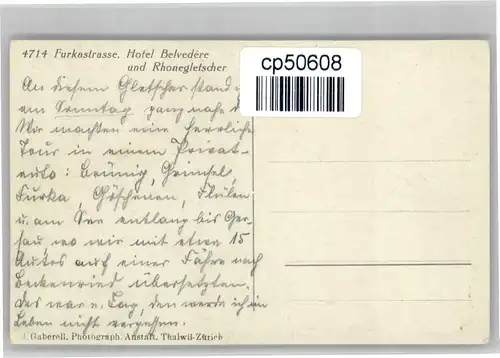 4714 Furkastrasse, Hotel Belvedère
und Rhonegletscher
cp50608
An diesem Gletscher stand i
am Sonntag ganz nahe d
Wir machten eine herrliche
Tour in einem Privat-
auto: Brünig, Grimsel,
Furka, Göschenen, Flülen
u. am See entlang bis Ger-
sau, wo wir mit etwa 15
Autos auf einer Fähre nach
Beckenried übersetzten.
das war e. Tag, den werde ich im
Leben nicht vergessen.
J. Gaberell, Photograph. Anstalt, Thalwil-Zürich